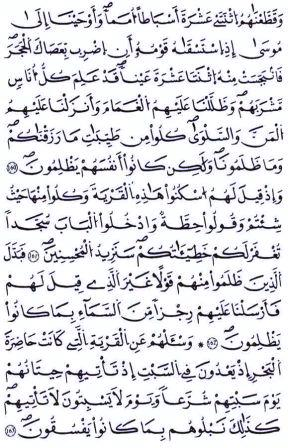 وَقَطَّعْنَٰهُمُ اثْنَتَےْ عَشْرَةَ أَسْبَاطاً أُمَماً وَأَوْحَيْنَا إِلَىٰ
مُوسَىٰ إِذِ اسْتَسْقَىٰهُ قَوْمُهُ أَنِ اضْرِب بِّعَصَاكَ الْحَجَرَ
فَانۢبَجَسَتْ مِنْهُ اثْنَتَا عَشْرَةَ عَيْناً قَدْ عَلِمَ كُلُّ أُنَاسٍ
مَّشْرَبَهُمْ وَظَلَّلْنَا عَلَيْهِمُ الْغَمَٰمَ وَأَنزَلْنَا عَلَيْهِمُ
الْمَنَّ وَالسَّلْوَىٰ كُلُوا مِن طَيِّبَٰتِ مَا رَزَقْنَٰكُمْ
وَمَا ظَلَمُونَا وَلَٰكِن كَانُوا أَنفُسَهُمْ يَظْلِمُونَ ١٦٠
وَإِذْ قِيلَ لَهُمُ اسْكُنُوا هَٰذِهِ الْقَرْيَةَ وَكُلُوا مِنْهَا حَيْثُ
شِئْتُمْ وَقُولُوا حِطَّةٌ وَادْخُلُوا الْبَابَ سُجَّداً
تُغْفَرْ لَكُمْ خَطِيٓـَٰٔتُكُمْ سَنَزِيدُ الْمُحْسِنِينَ ١٦١ فَبَدَّلَ
الَّذِينَ ظَلَمُوا مِنْهُمْ قَوْلاً غَيْرَ الَّذِے قِيلَ لَهُمْ
فَأَرْسَلْنَا عَلَيْهِمْ رِجْزاً مِّنَ السَّمَآءِ بِمَا كَانُوا
يَظْلِمُونَ ١٦٢ * وَسْـَٔلْهُمْ عَنِ الْقَرْيَةِ الَّتِے كَانَتْ حَاضِرَةَ
الْبَحْرِ إِذْ يَعْدُونَ فِے السَّبْتِ إِذْ تَأْتِيهِمْ حِيتَانُهُمْ
يَوْمَ سَبْتِهِمْ شُرَّعاً وَيَوْمَ لَا يَسْبِتُونَ لَا تَأْتِيهِمْ
كَذَٰلِكَ نَبْلُوهُم بِمَا كَانُوا يَفْسُقُونَ ١٦٣